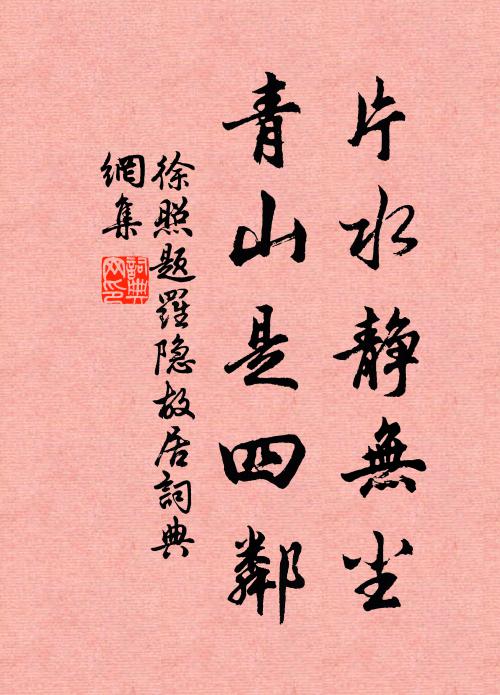 片水静無尘
青山是四鄰
徐照题羅隐故居詞典
網集
詞典網印